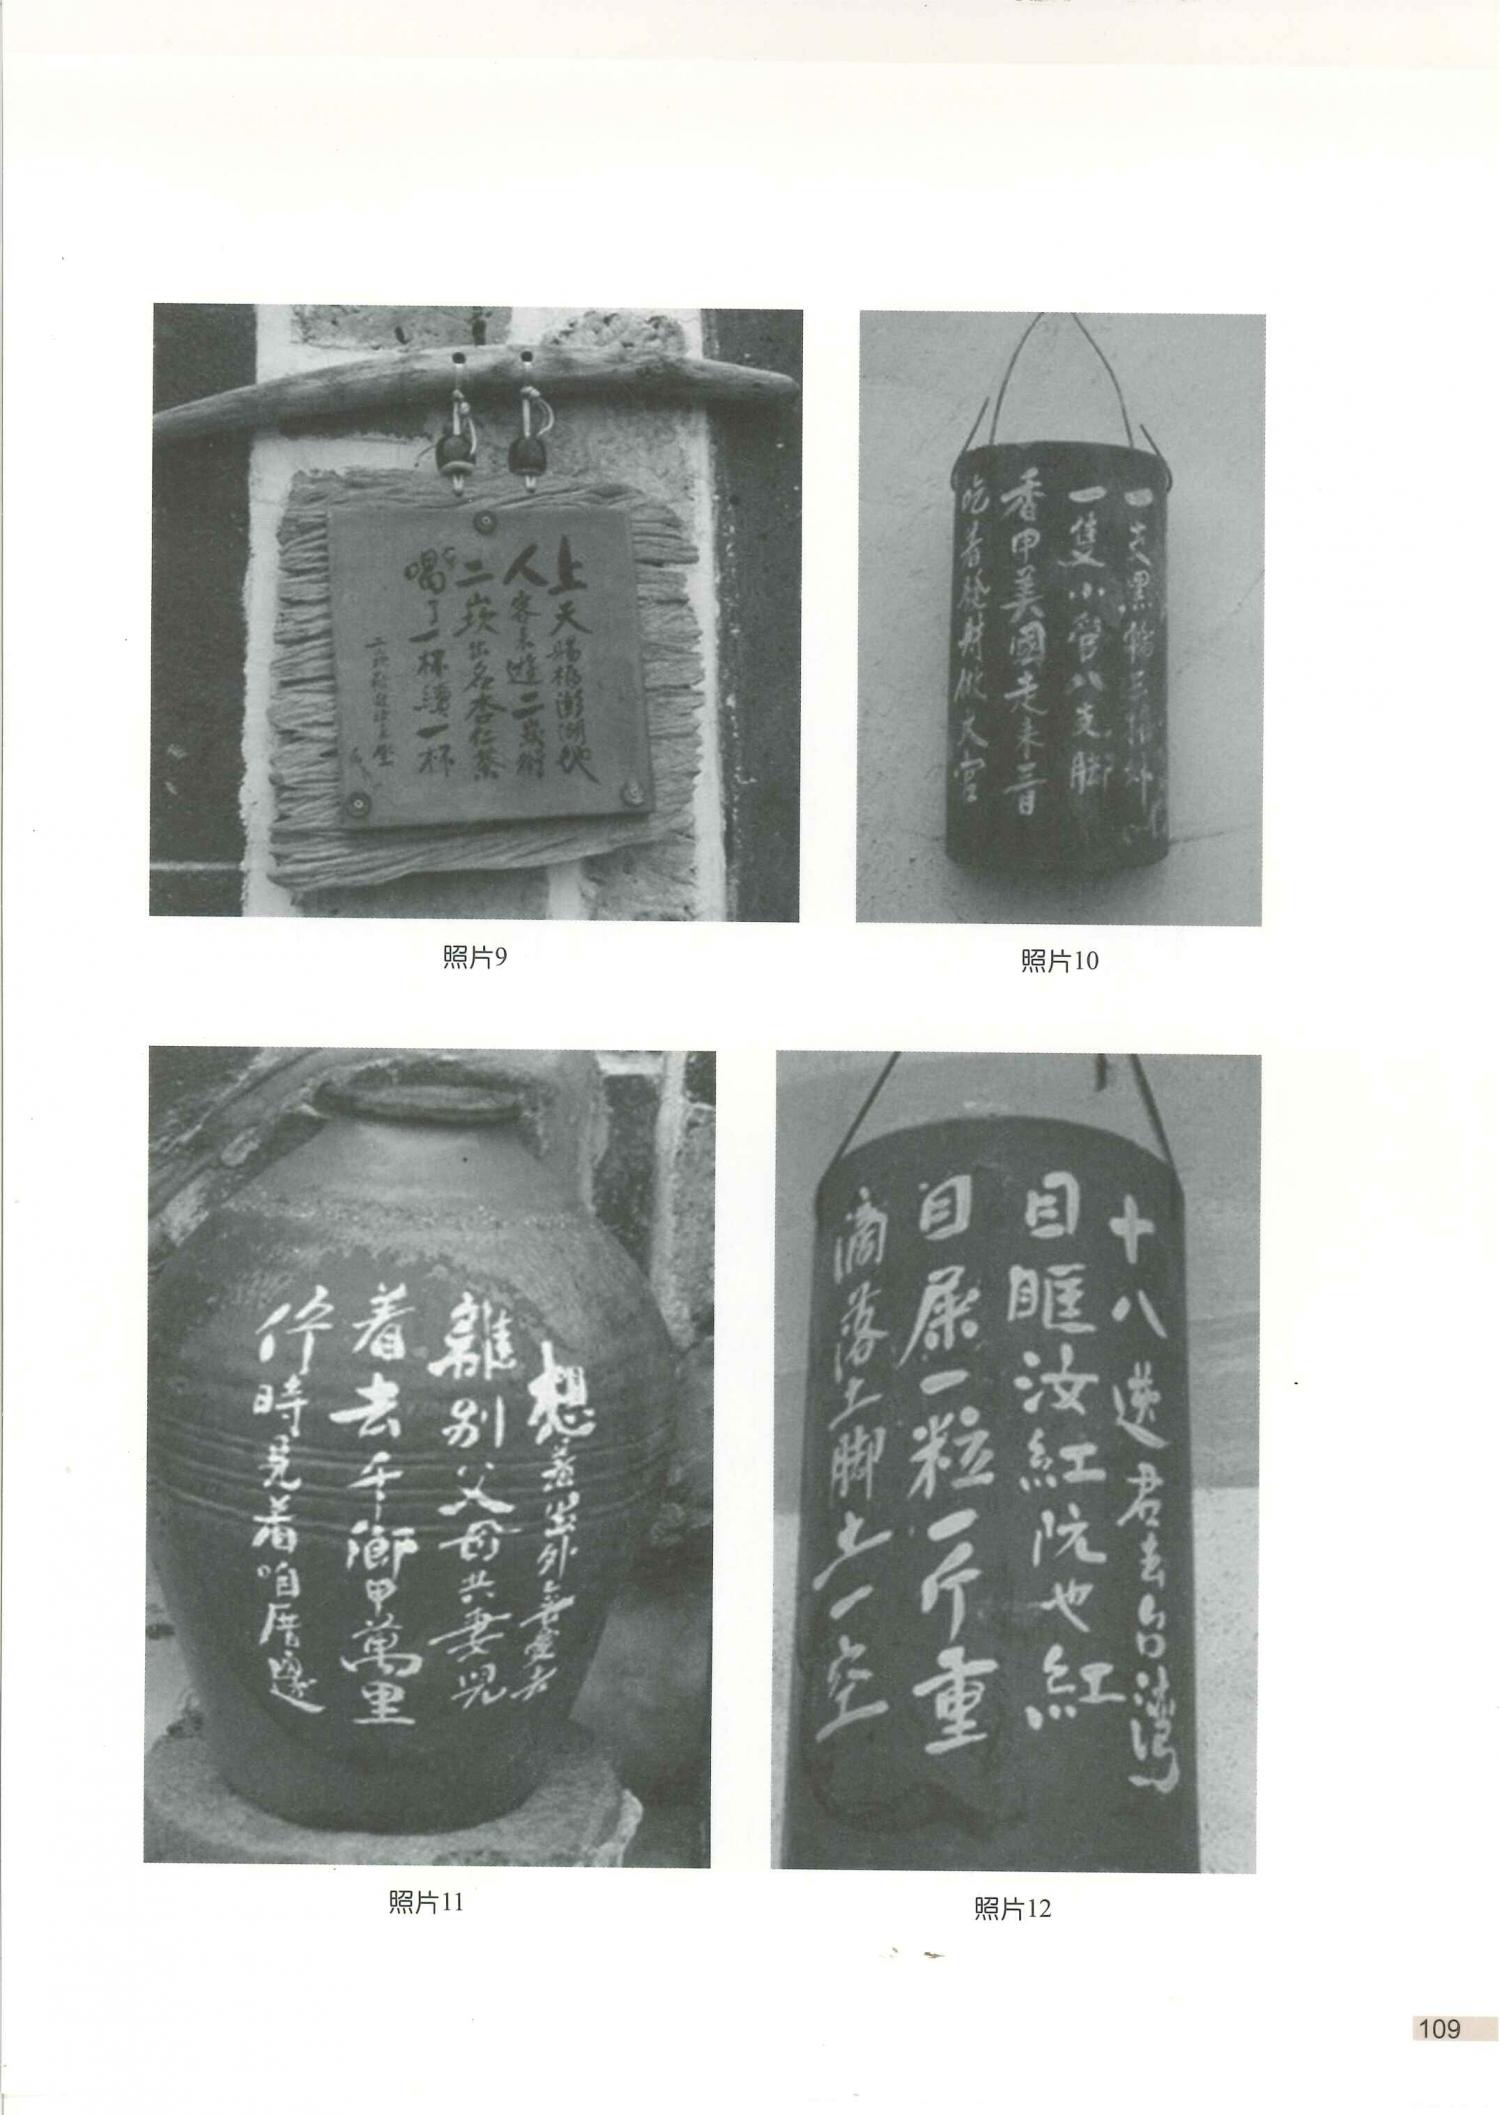 上天賜福澎湖地
人客來遊二崁村
二崁出名杏仁茶
喝了一杯續一杯
照片9
一隻小管八支腳
香甲美國走來聞
吃著發財做大官
照片10
想著出外
離別父母共妻兒
着去千鄉甲萬里
佇時見着咱厝邊
照片11
十八送君去台灣
目眶汝紅阮也紅
目屎一粒一斤重
滴落土腳土一空
照片12
109